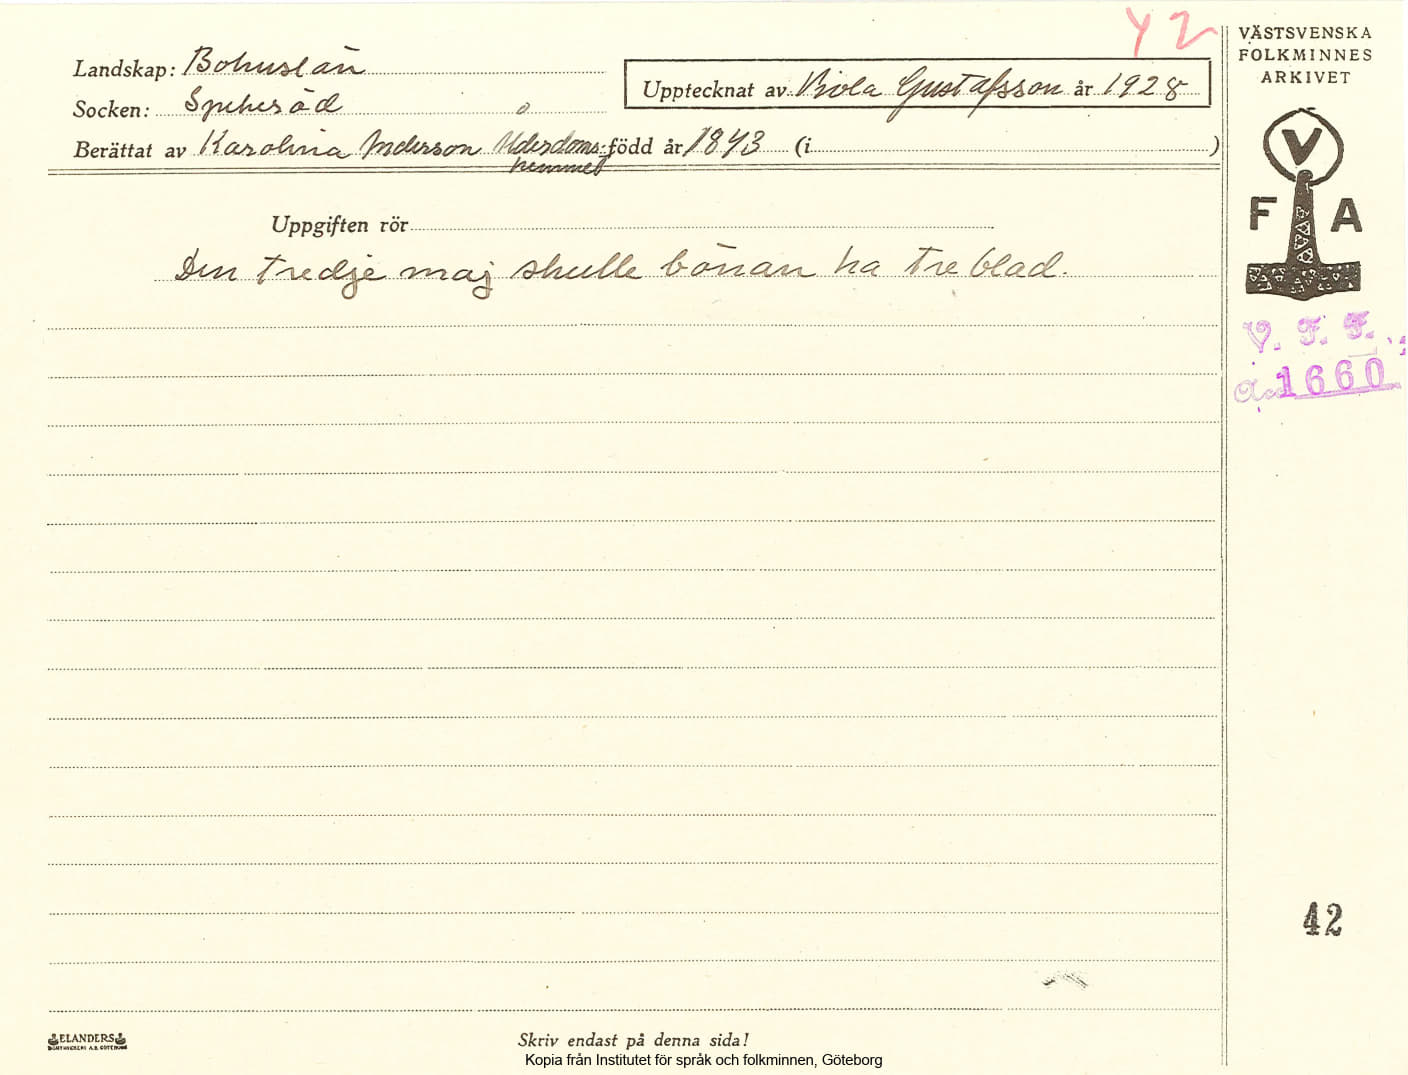 42
VÄSTSVENSKA
FOLKMINNES
ARKIVET
Landskap: Bohuslän
Uppteck­nat av Viola Gustafsson år 1928
Socken: Spekeröd
Berättat av Karolina Anderson Ålderdoms- född år 1843 (i )
hemmet
V
F A
Uppgiften rör
Den tredje maj skulle bönan ha tre blad.
V. F. F.
Acc 1660
42
ELANDERS
Skriv endast på denna sida!
Kopia från Institutet för språk och folkminnen, Göteborg